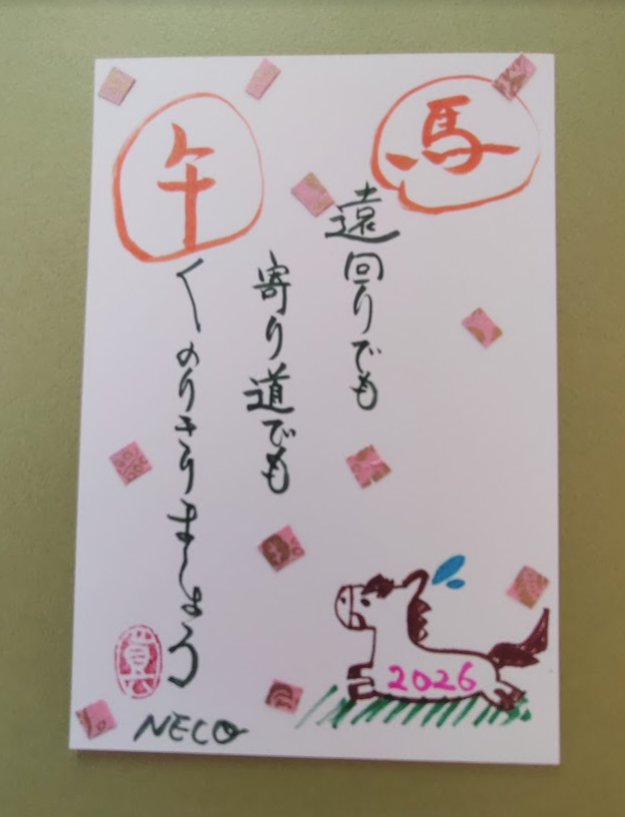 馬
遠回りでも
寄り道でも
午くのりきりましょう
2026
NECO